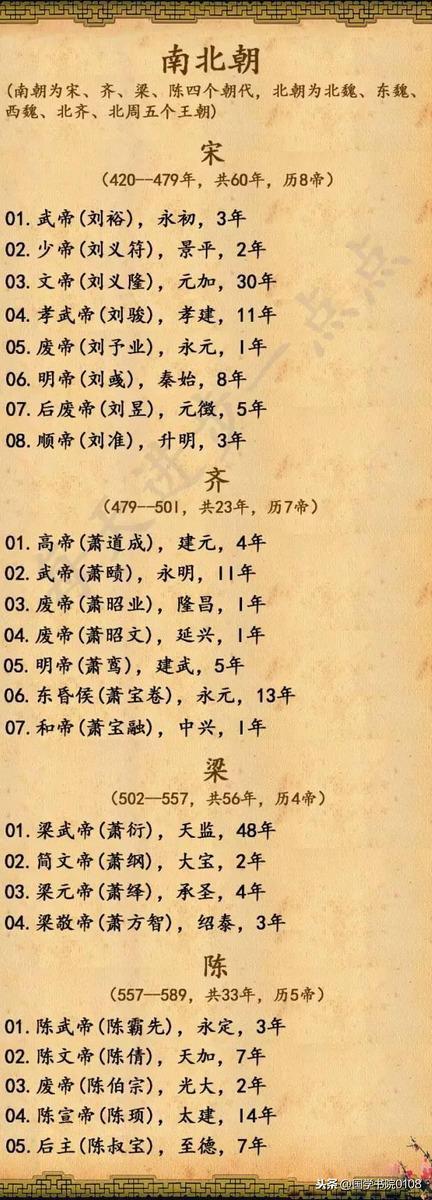 南北朝
(南朝为宋、齐、梁、陈四个朝代，北朝为北魏、东魏、
西魏、北齐、北周五个王朝)
宋
(420--479年，共60年，历8帝)
01.武帝(刘裕)，永初，3年
02.少帝(刘义符)，景平，2年
03.文帝(刘义隆)，元加，30年
04.孝武帝(刘骏)，孝建，11年
05.废帝(刘予业)，永元，1年
06.明帝(刘彧)，秦始，8年
07.后废帝(刘昱)，元徵，5年
08.顺帝(刘准)，升明，3年
齐
(479--501，共23年，历7帝)
01.高帝(萧道成)，建元，4年
02.武帝(萧赜)，永明，11年
03.废帝(萧昭业)，隆昌，1年
04.废帝(萧昭文)，延兴，1年
05.明帝(萧鸾)，建武，5年
06.东昏侯(萧宝卷)，永元，13年
07.和帝(萧宝融)，中兴，1年
梁
(502—557，共56年，历4帝)
01.梁武帝(萧衍)，天监，48年
02.简文帝(萧纲)，大宝，2年
03.梁元帝(萧绎)，承圣，4年
04.梁敬帝(萧方智)，绍泰，3年
陈
(557—589，共33年，历5帝)
01.陈武帝(陈霸先)，永定，3年
02.陈文帝(陈倩)，天加，7年
03.废帝(陈伯宗)，光大，2年
04.陈宣帝(陈顼)，太建，14年
05.后主(陈叔宝)，至德，7年
头条@国学书院0108